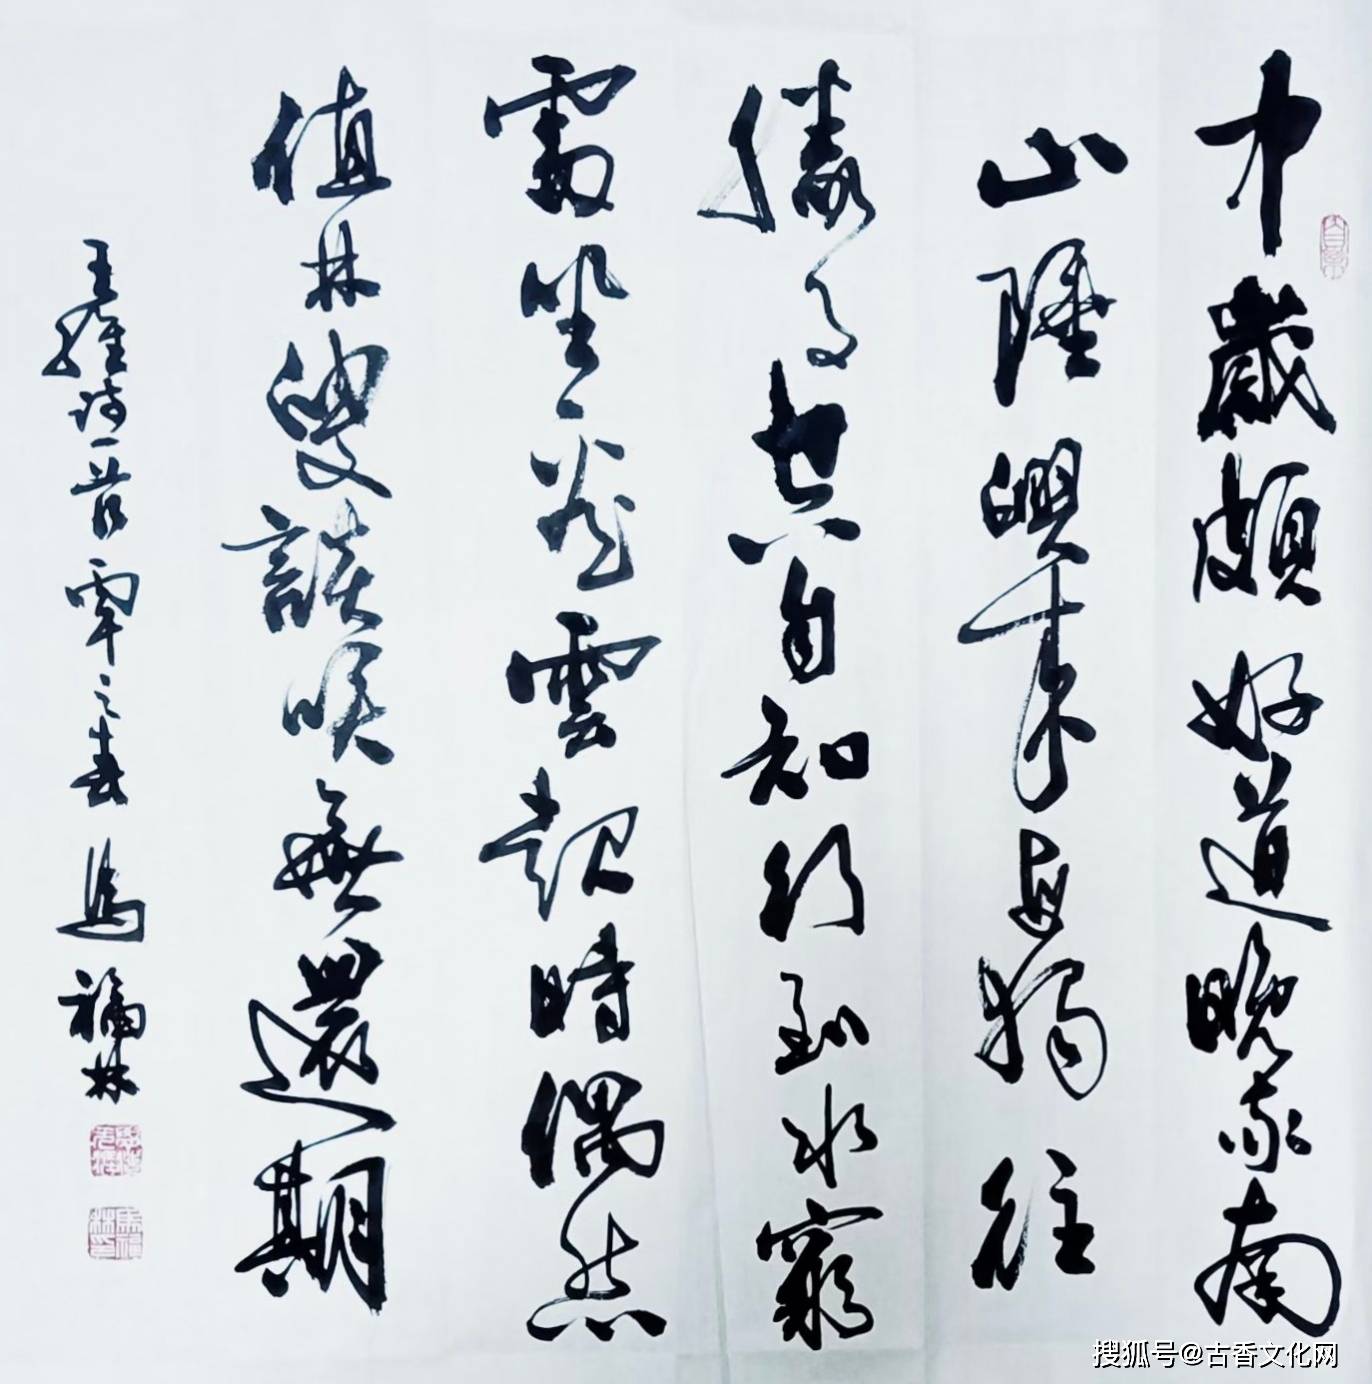 中歲頗好道晚家南
山陲興來每獨往
勝事空自知行到水窮
處坐看雲起時偶然
值林叟談咲無還期
王維詩一首之春馬福林
搜狐号@古香文化网